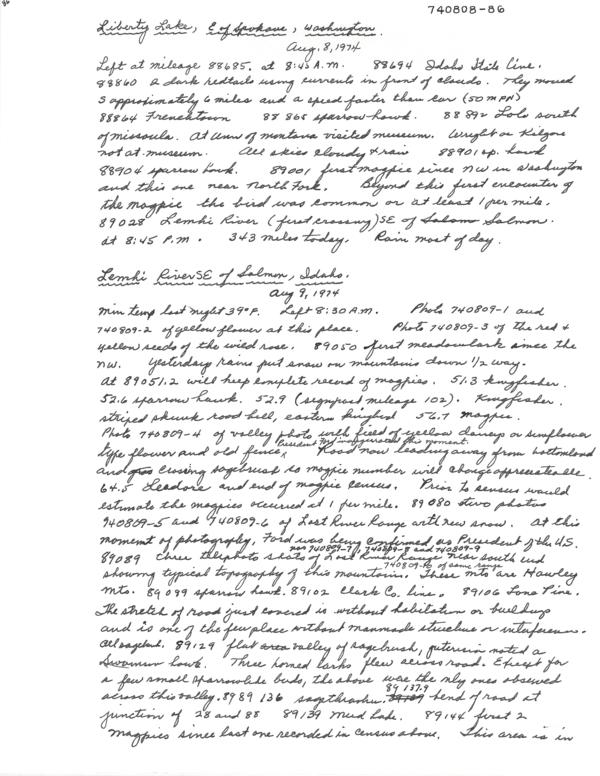 740808-86
Liberty Lake, E of Spokane, Washington.
Aug. 8, 1974
Left at mileage 88685, at 8:45 A.M. 88694 Idaho State line.
88860 2 dark redtails using currents in front of clouds. They moved
approximately 6 miles and a speed faster than car (50 MPH)
88864 Frenchtown 88865 sparrow hawk. 88892 Lolo south
of missoula. At Univ of montana visited museum. Wright or Kilgore
not at museum. All skies cloudy & rain 88901 sp. hawk
88904 sparrow hawk. 89001 first magpie since NW in Washington
and this one near North Fork. Beyond this first encounter of
the magpie the bird was common or at least 1 per mile.
89028 Lemhi River (first crossing) SE of Salmon.
at 8:45 P.M. 343 miles today. Rain most of day.
Lemhi River SE of Salmon, Idaho.
Aug 9, 1974
min temp last night 39°F. Left 8:30 A.M. Photo 740809-1 and
740809-2 of yellow flower at this place. Photo 740809-3 of the red &
yellow seeds of the wild rose. 89050 first meadowlark since the
NW. Yesterdays rains put snow on mountains down 1/2 way.
At 89051.2 will keep complete record of magpies. 51.3 kingfisher.
52.6 sparrow hawk. 52.9 (signpost mileage 102). Kingfisher.
striped skunk road kill, eastern kingbird 56.7 magpie.
Photo 740809-4 of valley photo with field of yellow daisys or sunflower
type flower and old fence, Road now leading away from bottomland
and crossing sagebrush so magpie number will change appreciable.
64.5 Leadore and end of magpie census. Prior to census would
estimate the magpies occurred at 1 per mile. 89080 two photos
740809-5 and 740809-6 of Lost River Range with new snow. At this
moment of photography, Ford was being confirmed as President of the U.S.
now 740809-7, 740809-8 and 740809-9
89089 three telephoto shots of Lost River Range near south end
740809-10 of same range
showing typical topography of this mountain. These mts are Hawley
mts. 89099 sparrow hawk. 89102 Clark Co. line. 89106 Lone Pine.
The stretch of road just covered is without habitation or buildings
and is one of the few place without manmade structure or interference.
all sagebrush. 89129 flat valley of sagebrush, noted a
Swainson hawk. Three horned larks flew across road. Except for
a few small sparrowlike birds, the above were the only ones observed
across this valley. 8989 136 sage thrasher. 89 137.9 bend of road at
junction of 28 and 88 89139 Mud Lake. 89144 first 2
magpies since last one recorded in census above. This area is in